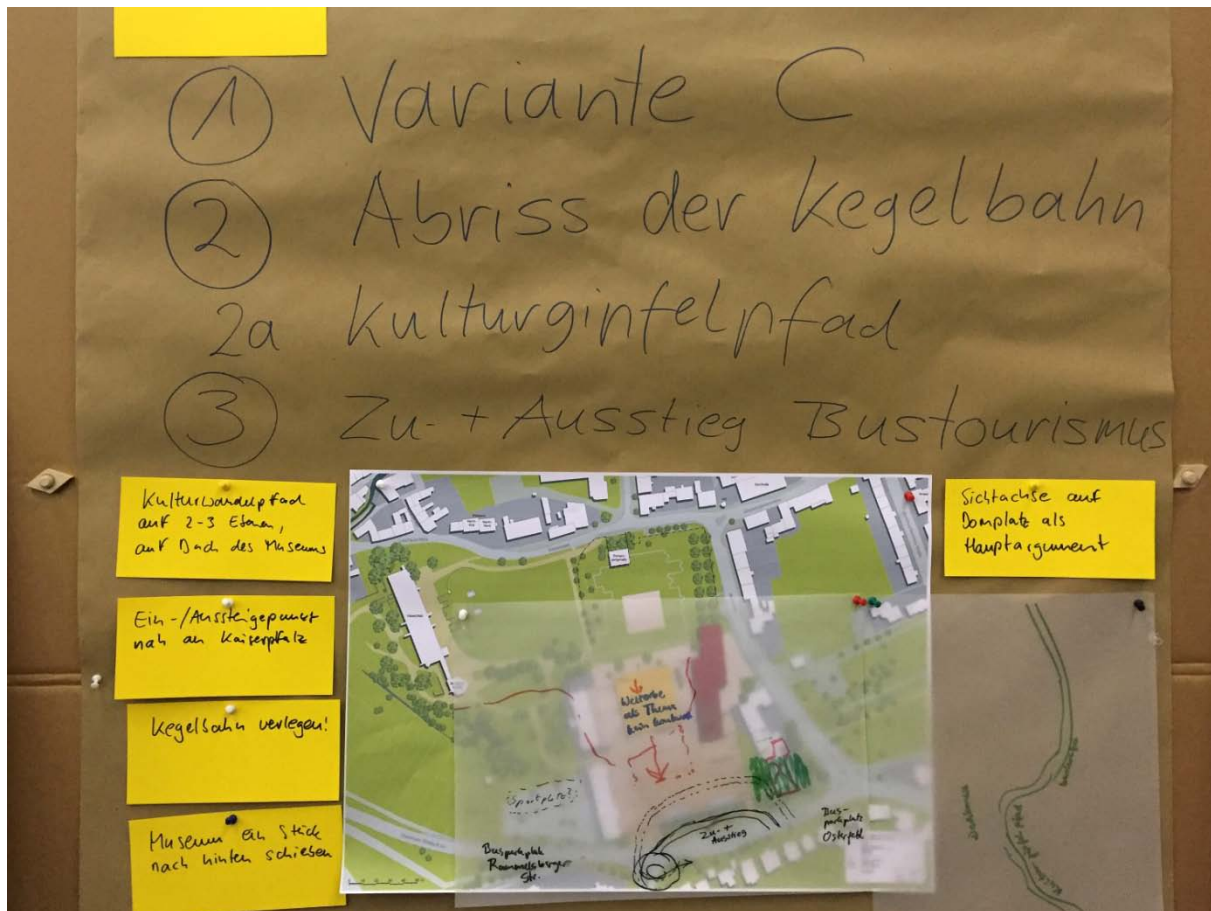 1 Variante C
2 Abriss der Kegelbahn
2a Kulturgipfelpfad
3 Zu- + Ausstieg Bustourismus
Kulturwandelpfad
auf 2-3 Etagen,
auf Dach des Museums
Ein-/Aussteigepunkt
nah an Kaiserpfalz
Kegelbahn verlegen!
Museum ein Stück
nach hinten schieben
Sichtachse auf
Domplatz als
Hauptargument
Welterbe
als Thema
Sportplatz?
Zu- +
Ausstieg
Busparkplatz
Rammelsberger
Str.
Bus-
parkplatz
Osterfeld